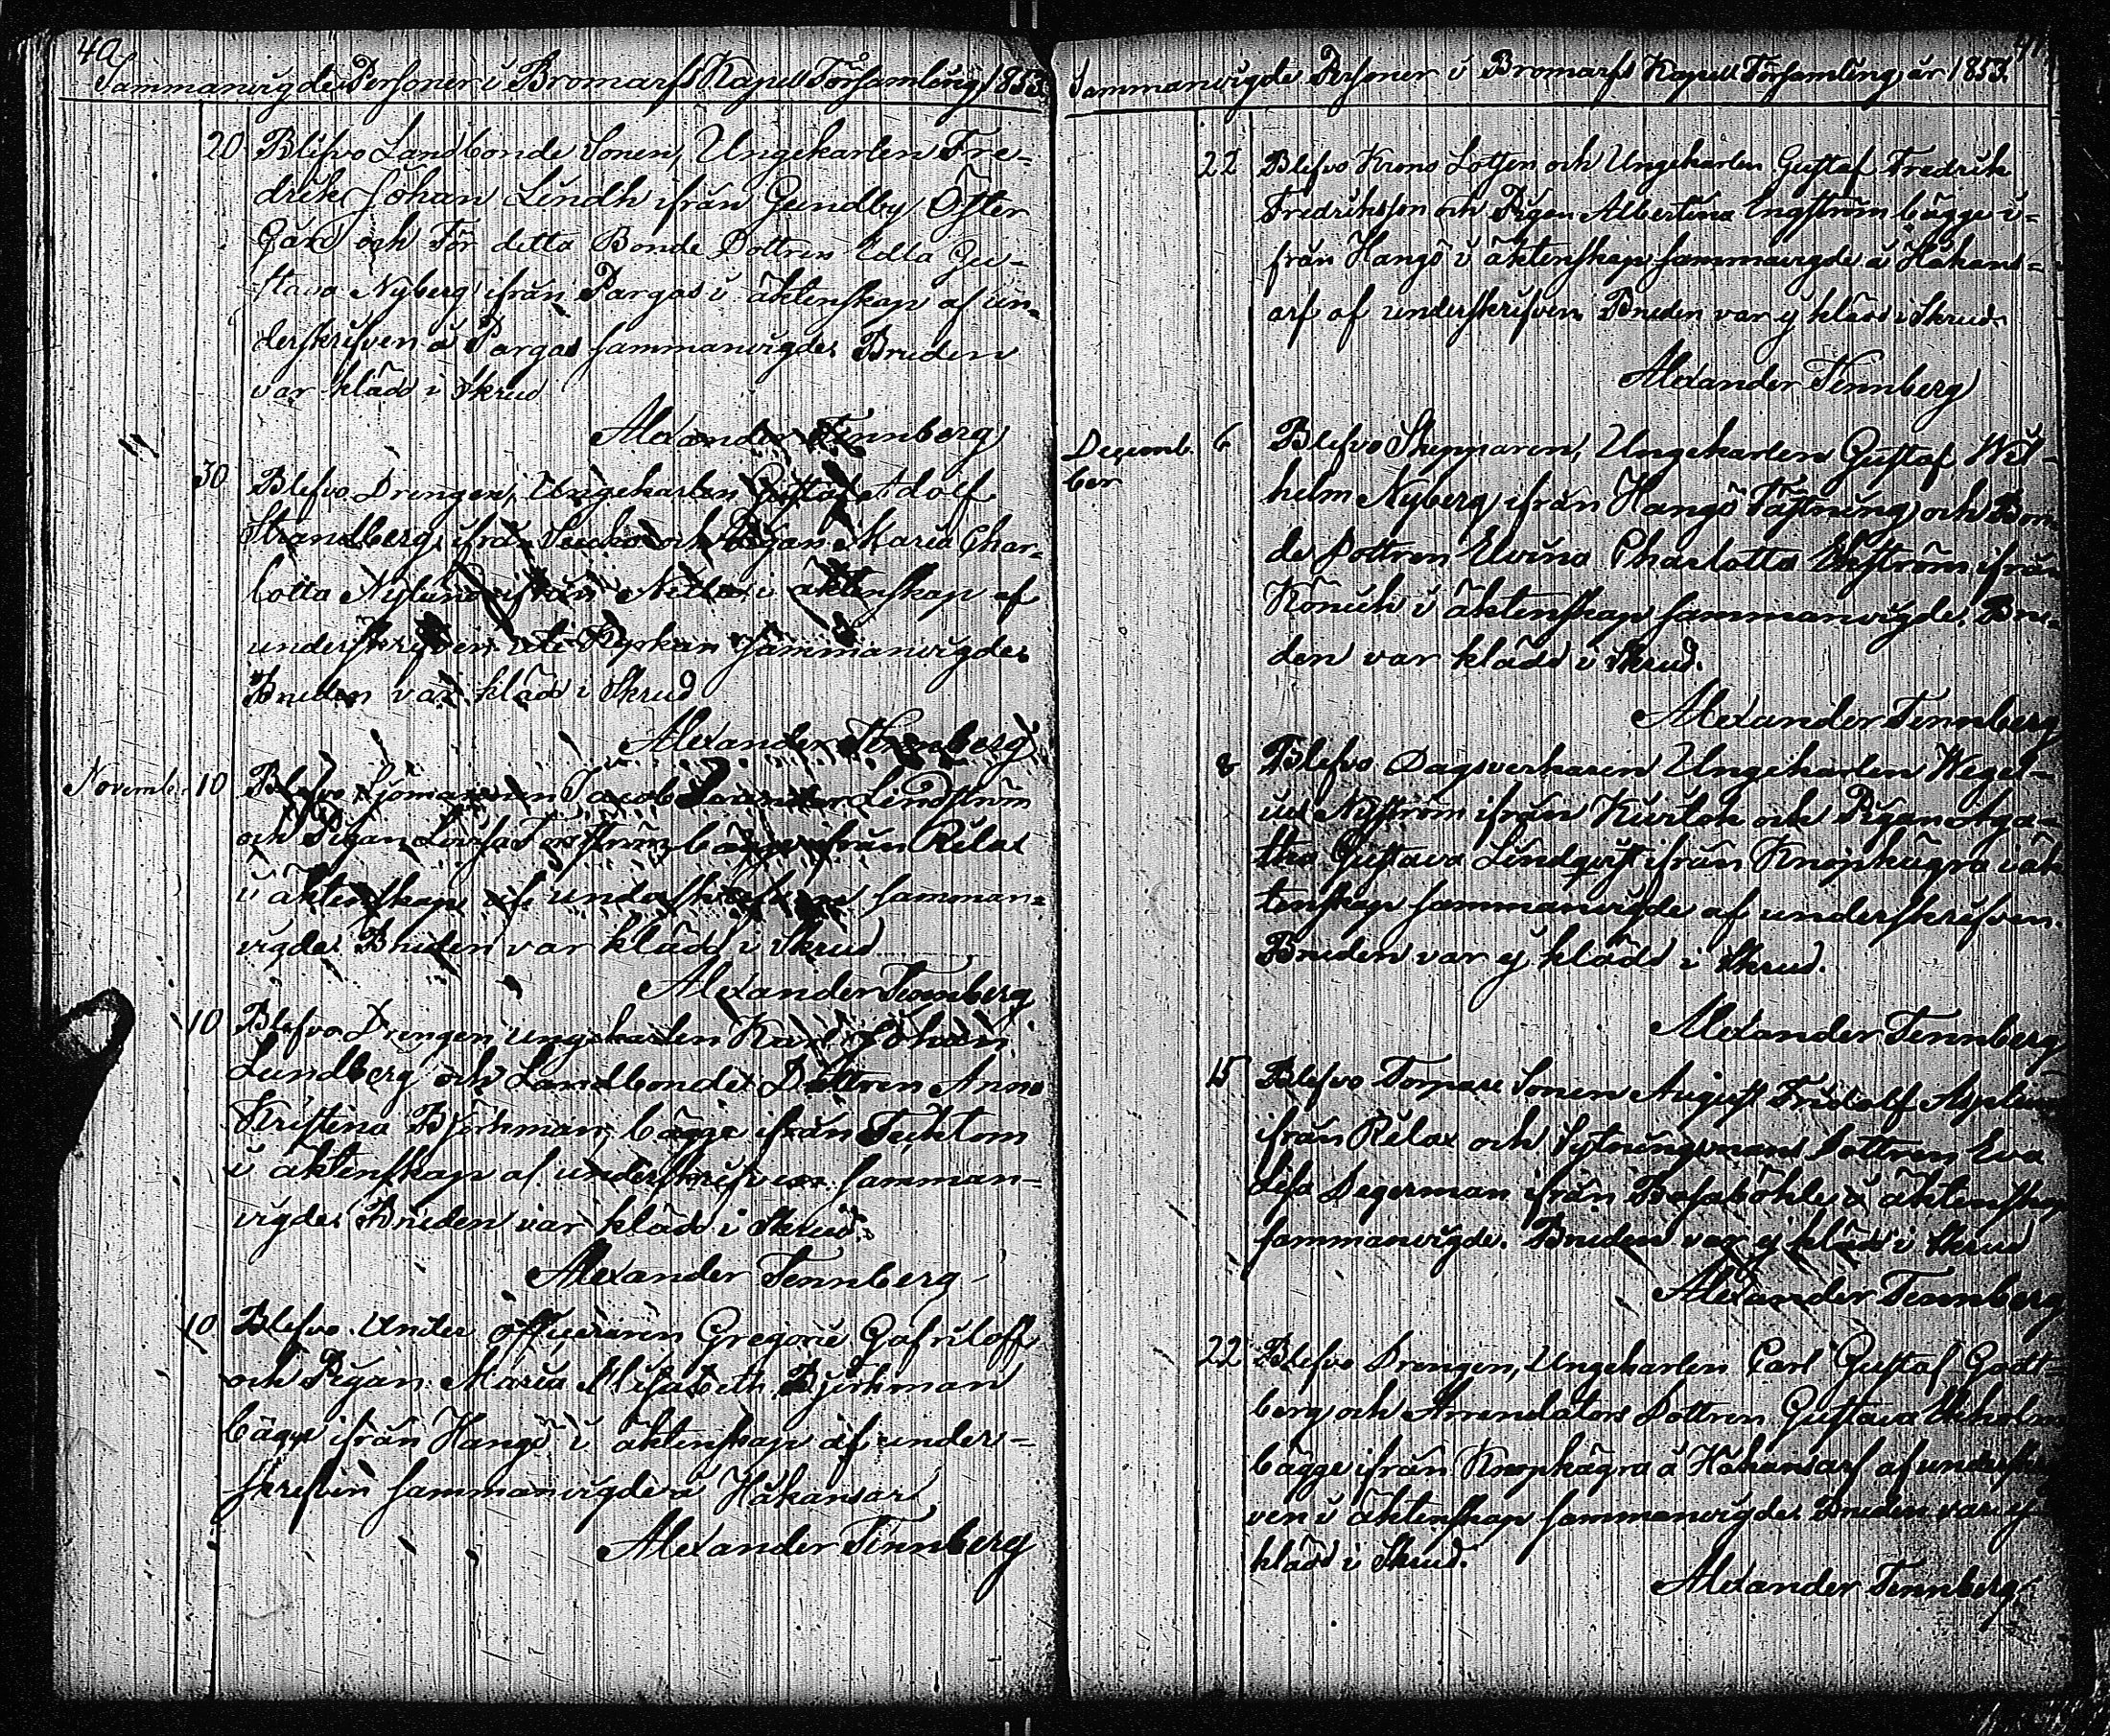 40
Sammanvigde Personer i Bromarfs Kapell Församling, 1853
20 Blefvo Landbonde Sonen, Ungekarlen Fre-
drik Johan Lindh ifrån Gundby Öster
Gård och För detta Bonde Dottren Edla Gu-
stava Nyberg ifrån Pargas i äktenskap af un-
derskrifven å Pargas sammanvigde. Bruden
var klädd i Skrud
Alexander Tennberg
30 Blefvo Drengen, Ungekarlen Gustaf Adolf
Strandberg, ifrån och Pigan Maria Char-
lotta Nylund ifrån i äktenskap af
underskrifven uti Kyrkan sammanvigde.
Bruden var klädd i Skrud
Alexander Tennberg
November 10 Blefvo Sjömannen Jacob Lindström
och Pigan Lovisa bägge ifrån Rilax
i äktenskap af underskrifven samman-
vigde. Bruden var klädd i Skrud
Alexander Tennberg
10 Blefvo Drengen, ungekarlen Karl Johan
Lundberg och Landbondes Dottren Anna
Kristina Björkman, bägge ifrån Täcktom
i äktenskap af underskrifven samman-
vigde. Bruden var klädd i Skrud.
Alexander Tennberg
10 Blefvo Under officeraren Gregorie Gafriloff
och Pigan Maria Elisabeth Björkman
bägge ifrån Hangö i äktenskap af under-
skrifven sammanvigde å Håkansarf
Alexander Tennberg
41
Sammanvigde Personer i Bromarfs Kapell Församling, år 1853.
22 Blefvo Krono Lotsen och Ungekarlen Gustaf Fredrik
Fredriksson och Pigan Albertina Engström bägge i-
från Hangö i äktenskap sammanvigde å Håkans-
arf af underskrifven Bruden var ej klädd i Skrud.
Alexander Tennberg
Decemb 6 Blefvo Skepparen, Ungekarlen Gustaf Wil-
ber helm Nyberg ifrån Hangö Fästning, och Bon-
de Dottren Elvina Charlotta Ekström ifrån
i äktenskap sammanvigde. Bru-
den var klädd i Skrud.
Alexander Tennberg
8 Blefvo Dagsverkaren Ungekarlen Wegel-
ius Nyström ifrån och Pigan Aga-
tha Gustava Lindqvist ifrån Knopkägra i äk
tenskap sammanvigde af underskrifven.
Bruden var ej klädd i Skrud.
Alexander Tennberg
15 Blefvo Torpare Sonen August Fridolf Asplund
ifrån Rilax och Sytningsmans Dottren Eva
Lisa Degerman ifrån i äktenskap
sammanvigde. Bruden var ej klädd i Skrud
Alexander Tennberg
22 Blefvo Drengen, Ungekarlen Carl Gustaf Gott-
berg och Arrendators Dottren Gustava Ekholm
bägge ifrån Knopkägra å Håkansarf af underskrif
ven i äktenskap sammanvigde. Bruden var ej
klädd i Skrud.
Alexander Tennberg